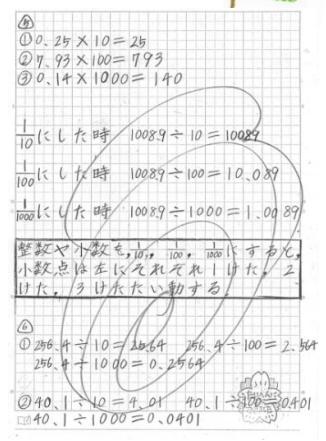 ⑤
① 0.25×10=25
② 7.93×100=793
③ 0.14×1000=140
1/10にした時 1008.9÷10=100.89
1/100にした時 1008.9÷100=10.089
1/1000にした時 1008.9÷1000=1.0089
整数や小数を,1/10,,1/100,1/1000にすると,
小数点は左にそれぞれ1けた,2
けた,3けたたい動する。
⑥
① 256.4÷10=25.64 256.4÷100=2.564
256.4÷1000=0.2564
② 40.1÷10=4.01 40.1÷100=0.401
40.1÷1000=0.0401